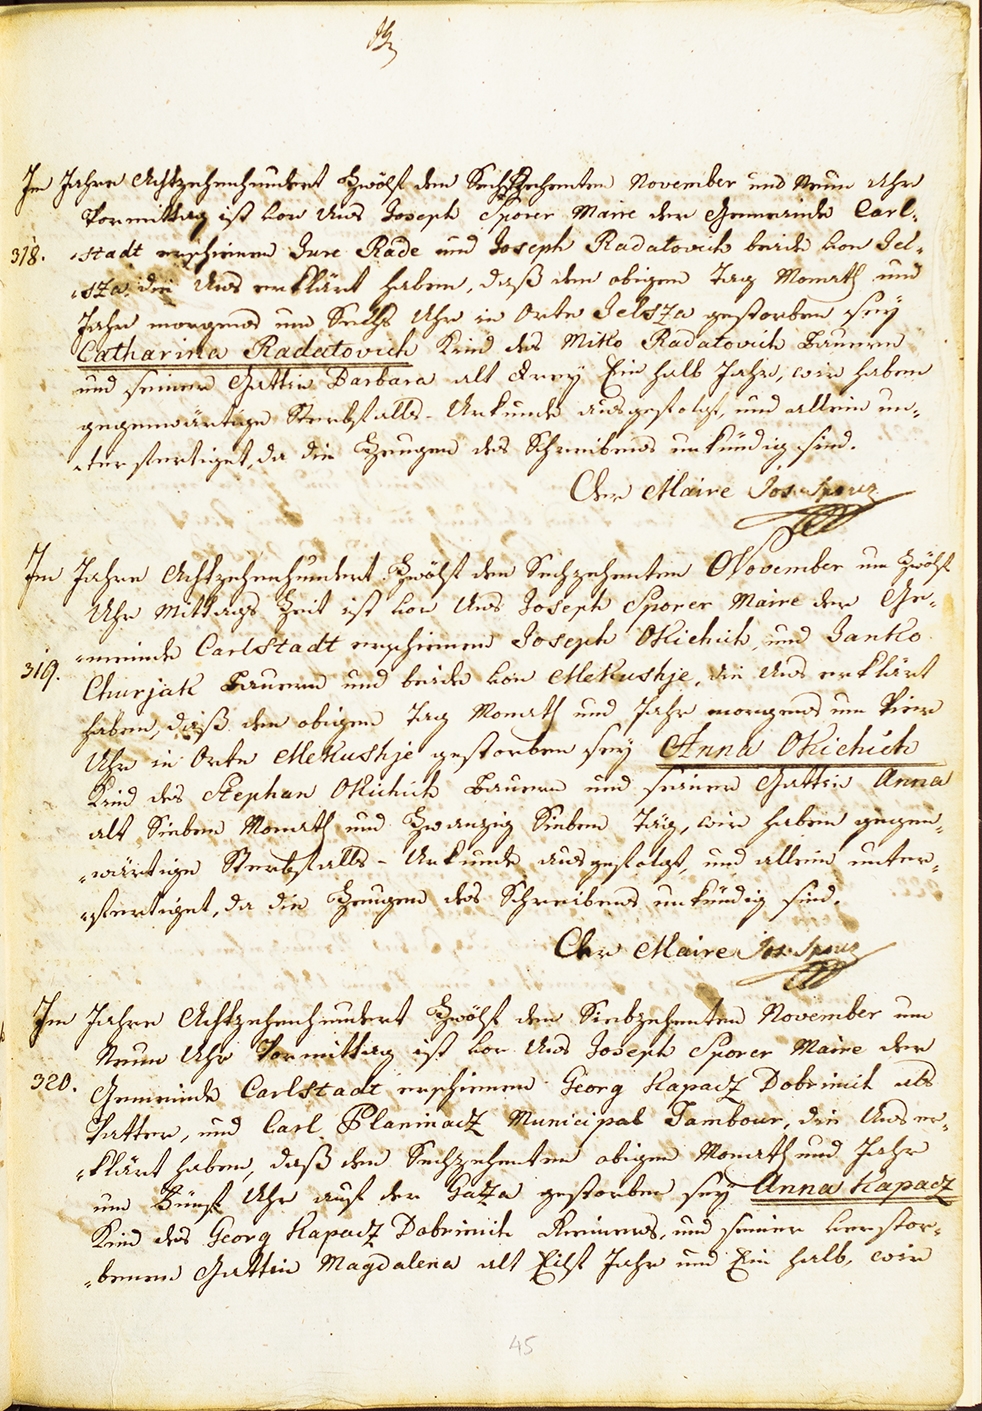 Im Jahre Achtzehenhundert Zwölf den Sechszehenten November und Neun Uhr
Vormittag ist vor Uns Joseph Sporer Maire der Gemeinde Carl-
318. -stadt erschienen Jure Rade und Joseph Radatovich beide von Jel-
-sza, die Uns erklärt haben, daß den obigen Tag Monath und
Jahr morgens um Sechs Uhr in Orte Jelsza gestorben sey
Catharina Radatovich Kind des Miko Radatovich Bauern
und seiner Gattin Barbara alt Drey Ein halb Jahr, wir haben
gegenwärtige Sterbfalls-Urkunde ausgefolgt, und allein un-
-terfertiget, da die Zeugen des Schreibens unkündig sind.
Der Maire Jos. Sporer
Im Jahre Achtzehenhundert Zwölf den Sechzehenten November um Zwölf
Uhr Mittags Zeit ist vor Uns Joseph Sporer Maire der Ge-
-meinde Carlstadt erschienen Joseph Michich, und Janko
319. Churjak Bauern und beide von Mekushje, die Uns erklärt
haben, daß den obigen Tag Monath und Jahr morgens um Vier
Uhr in Orte Mekushje gestorben sey Anna Michich
Kind des Stephan Michich Bauern und seiner Gattin Anna
alt Sieben Monath und Zwanzig Sieben Täg, wir haben gegen-
-wärtige Sterbfalls-Urkunde ausgefolgt, und allein unter-
-fertiget, da die Zeugen des Schreibens unkündig sind.
Der Maire Jos. Sporer
Im Jahre Achtzehenhundert Zwölf den Siebzehenten November um
Neun Uhr Vormittag ist vor Uns Joseph Sporer Maire der
320. Gemeinde Carlstadt erschienen Georg Kapacz Dobrinit als
Vatter, und Carl Planinacz Municipal Tambour, die Uns er-
-klärt haben, daß den Sechzehenten obigen Monath und Jahr
um Fünf Uhr auf der Gazza gestorben sey Anna Kapacz
Kind des Georg Kapacz Dobrinit, und seiner verstor-
-benen Gattin Magdalena alt Eilf Jahr und Ein halb, wir
45